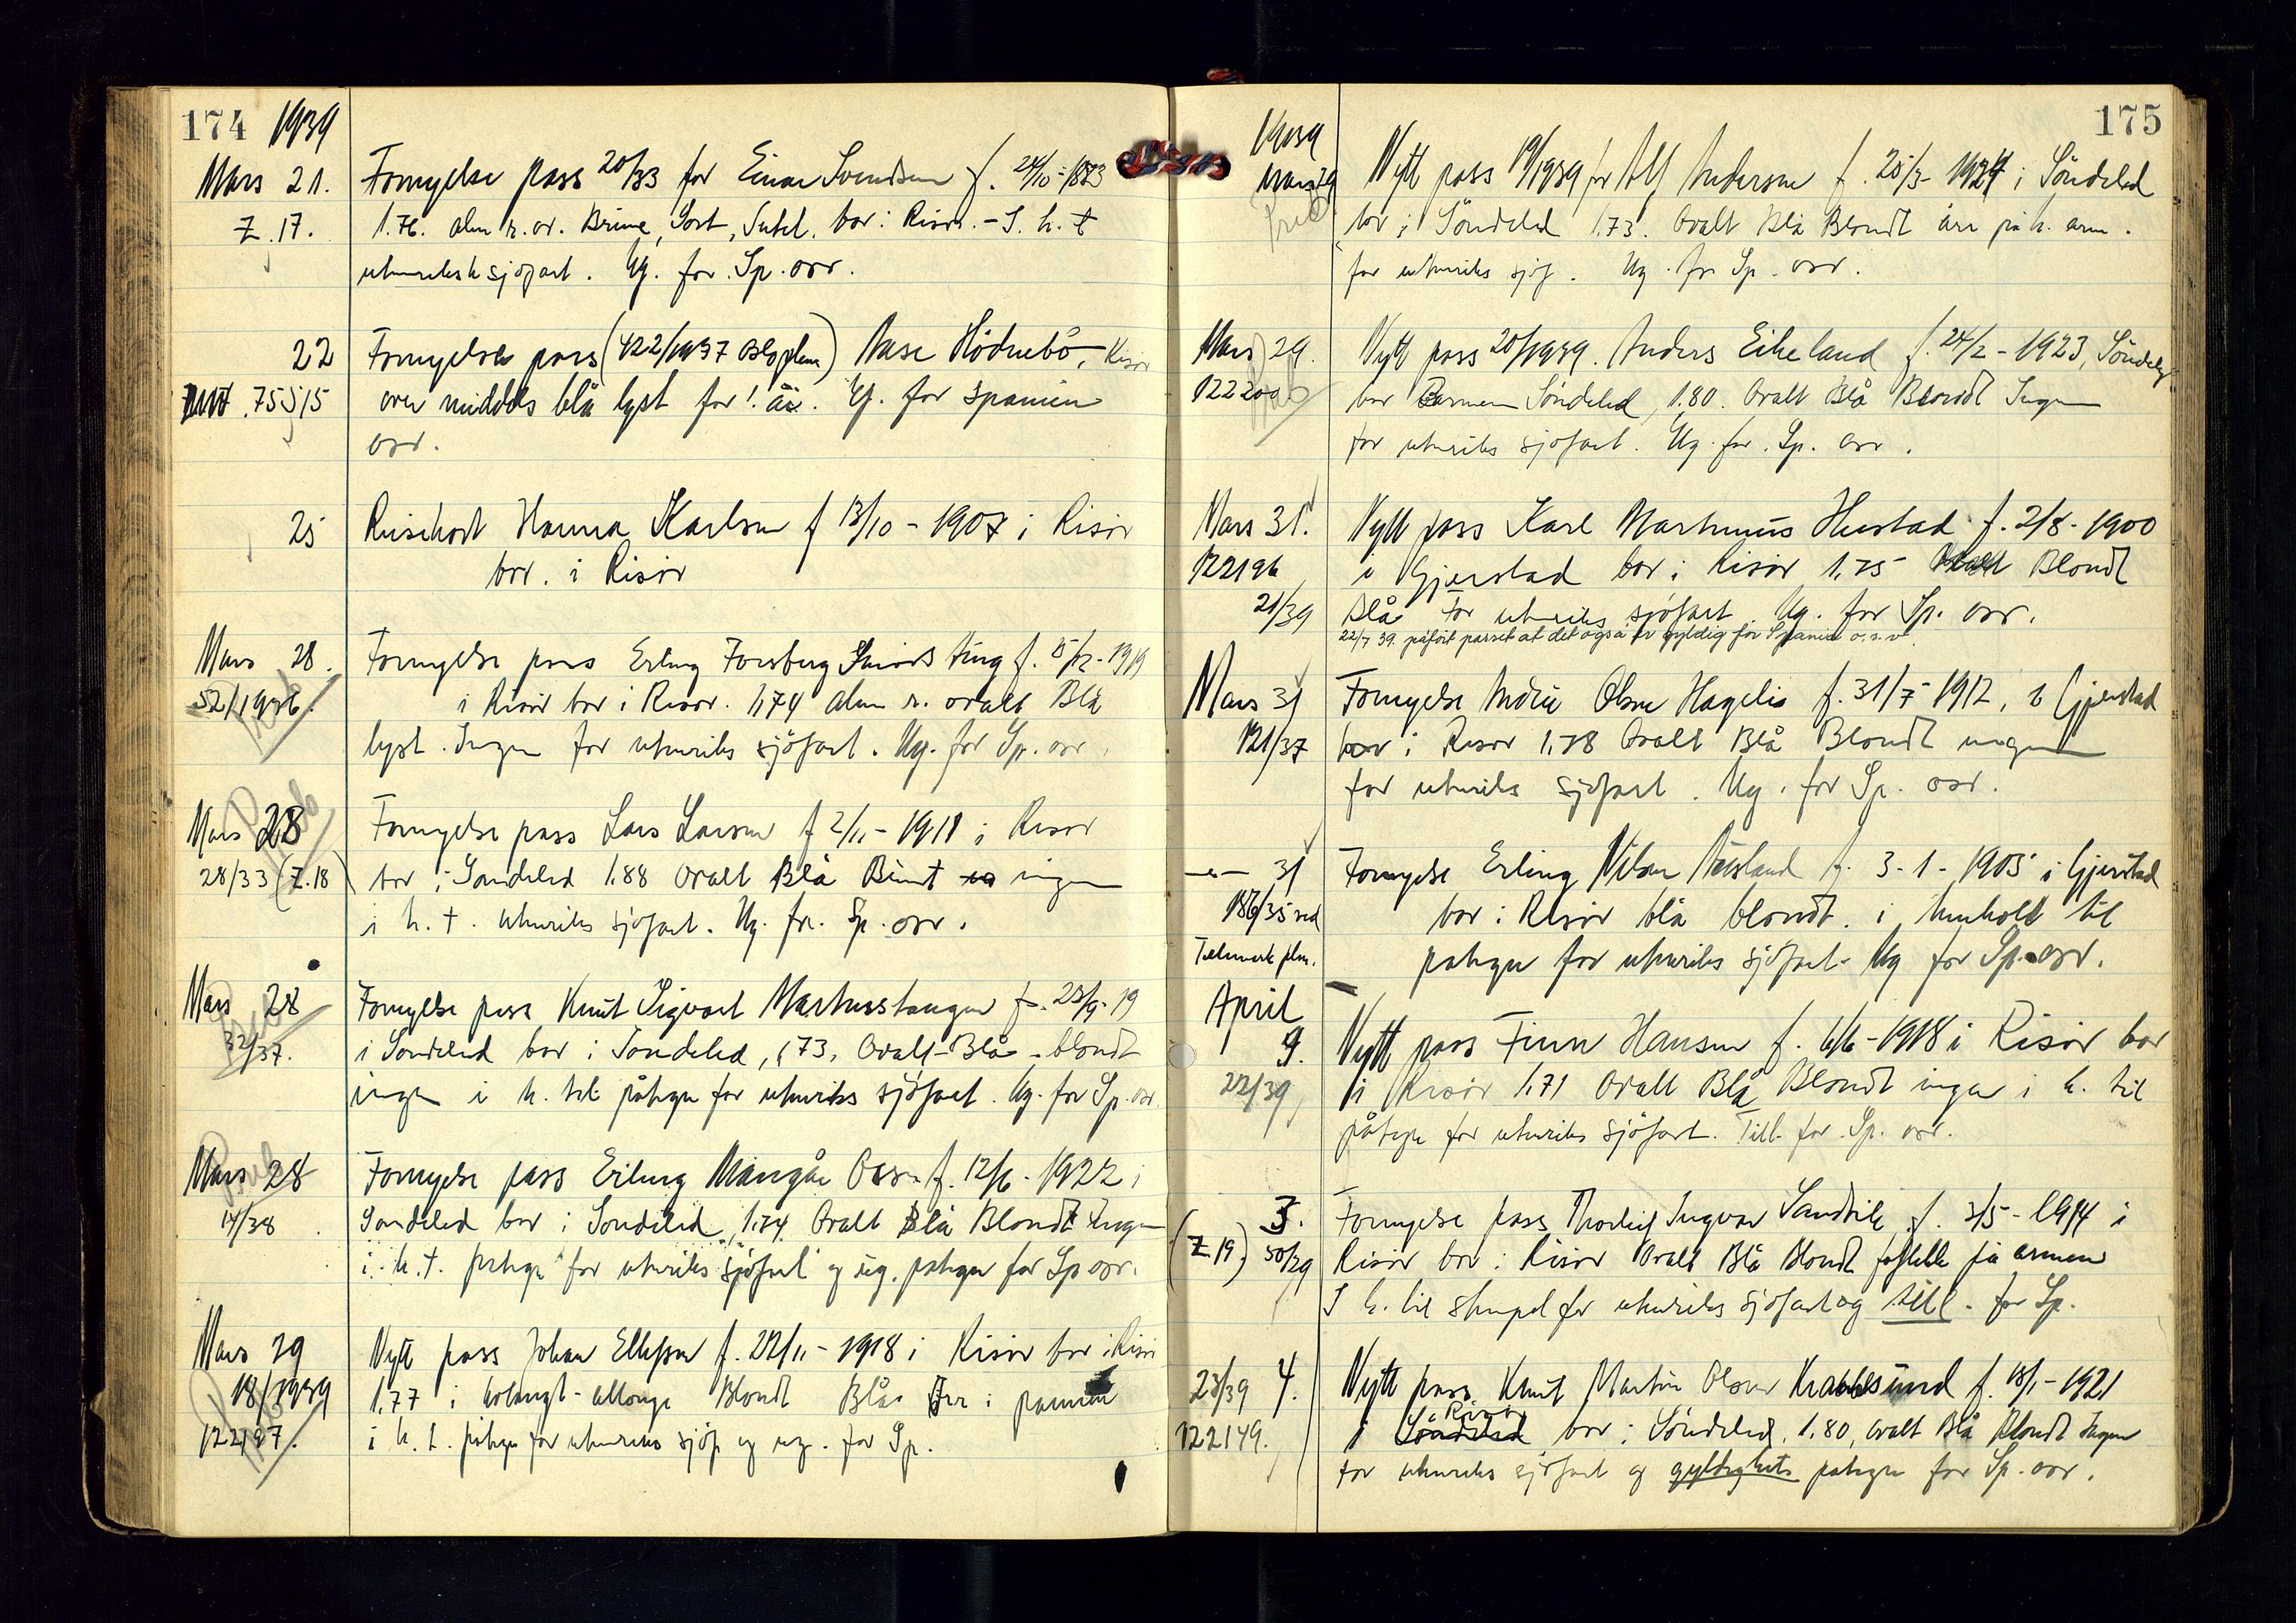 174 1939
Mars 21. Fornyelse pass 20/33 for Einar Svendsen f. 24/10-1883
Z.17. 1.76. alm r. ov. Brune, Sort, Intet. bor i Risør. - I. h. t
utenriksk sjöfart. Ug. for Sp. osv.
22 Fornyelse pass (422/1937 Osloplm) Aase Hödnebö, Risör
75515 over middels blå lyst for 1 år. Ug. for Spanien
osv.
25 Reisekort Hanna Karlsen f 13/10-1907 i Risör
bor. i Risör
Mars 28. Fornyelse pass Erling Forsberg f. 1919
52/1936. i Risör bor i Risör. 1,74 alm r. ovalt Blå
lyst. Ingen for utenriks sjöfart. Ug. for Sp. osv.
Mars 28 Fornyelse pass Lars Larsen f 2/11-1911 i Risör
28/33 (Z.18) bor i Söndeled 1.88 Ovalt Blå Brunt ingen
i h. t. utenriks sjöfart. Ug. for. Sp. osv.
Mars 28 Fornyelse pass Knut Sigvart f. 23/9-19
32/37. i Söndeled bor i Söndeled, 173, Ovalt-Blå-blondt
ingen i h. til påtegn for utenriks sjöfart. Ug. for Sp. osv.
Mars 28 Fornyelse pass Erling f. 12/6-1922 i
14/38 Söndeled bor i Söndeled, 1,74 Ovalt Blå Blondt Ingen
i h.t. påtegn for utenriks sjöfart og ug. påtegn for Sp osv.
Mars 29 Nytt pass Johan Ellefsen f. 22/11-1918 i Risör bor i Risör
18/1939 1,77 i Blondt Blå Arr i pannen
122197. i h. t. påtegn for utenriks sjöf og ug. for Sp.
175
1939
Mars 29 Nytt pass 19/1939 for Alf Andersen f. 25/3-1924 i Söndeled
bor i Söndeled 1.73. Ovalt Blå Blondt arr på h. arm.
for utenriks sjöf. Ug. for Sp. osv.
Mars 29. Nytt pass 20/1939. Anders Eikeland f. 24/2-1923, Söndeled
122200 bor Söndeled, 1.80. Ovalt Blå Blondt Ingen
for utenriks sjöfart. Ug. for. Sp. osv.
Mars 31. Nytt pass Karl Martinius Hustad f. 2/8-1900
122196 i Gjerstad bor i Risör 1,75 Ovalt Blondt
21/39 Blå For utenriks sjöfart. Ug. for Sp. osv.
22/7 39. påfört passet at det også er gyldig for Spania o.s.v.
Mars 31 Fornyelse Olsen Hagelia f. 31/7-1912, i Gjerstad
121/37 bor i Risör 1,78 Ovalt Blå Blondt ingen
for utenriks sjöfart. Ug. for Sp. osv.
-"- 31 Fornyelse Erling Nilsen f. 3-1-1905 i Gjerstad
186/35 ved bor i Risör blå blondt. i henhold til
Telemark plm. påtegn for utenriks sjöfart- Ug for Sp. osv.
April
9. Nytt pass Finn Hansen f. 6/6-1918 i Risör bor
22/39 i Risör 1,71 Ovalt Blå Blondt ingen i h. til
påtegn for utenriks sjöfart. Till. for. Sp. osv.
3. Fornyelse pass Thorleif Ingvar Sandvik f. 3/5-1914 i
(Z.19) 50/29 Risör bor i Risör Ovalt Blå Blondt på armen
I h. til stempel for utenriks sjöfart og till. for Sp.
23/39 4. Nytt pass Knut Martin Olsen Krabbesund f. 18/1-1921
122149. i Söndeled Risör bor i Söndeled. 1.80, ovalt Blå Blondt Ingen
for utenriks sjöfart og gyldighets påtegn for Sp. osv.